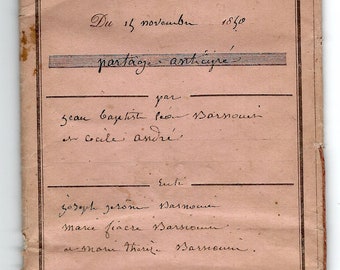 Du 15 novembre 1858
partage anticipé
par
Jean Baptist Léon Barnouin
et Cécile André
Entre
Joseph Jérôme Barnouin
Marie Fiacre Barnouin
et Marie Thérèse Barnouin.